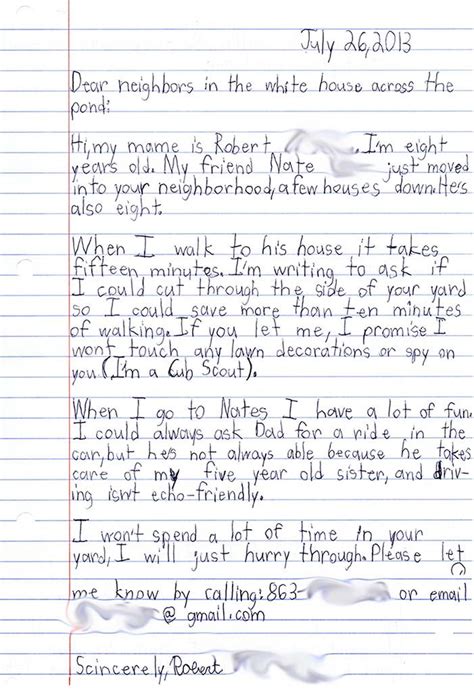 July 26,2013
Dear neighbors in the white house across the
pond:
Hi, my mame is Robert . I'm eight
years old. My friend Nate just moved
into your neighborhood, a few houses down. Hes
also eight.
When I walk to his house it takes
fifteen minutes. I'm writing to ask if
I could cut through the side of your yard
so I could save more than ten minutes
of walking. If you let me, I promise I
wont touch any lawn decorations or spy on
you (I'm a Cub Scout).
When I go to Nates I have a lot of fun.
I could always ask Dad for a ride in the
car, but hes not always able because he takes
care of my five year old sister, and driv-
ing isn't echo-friendly.
I won't spend a lot of time in your
yard, I will just hurry through. Please let
me know by calling: 863- or email
@ gmail.com
Scincerely, Robert